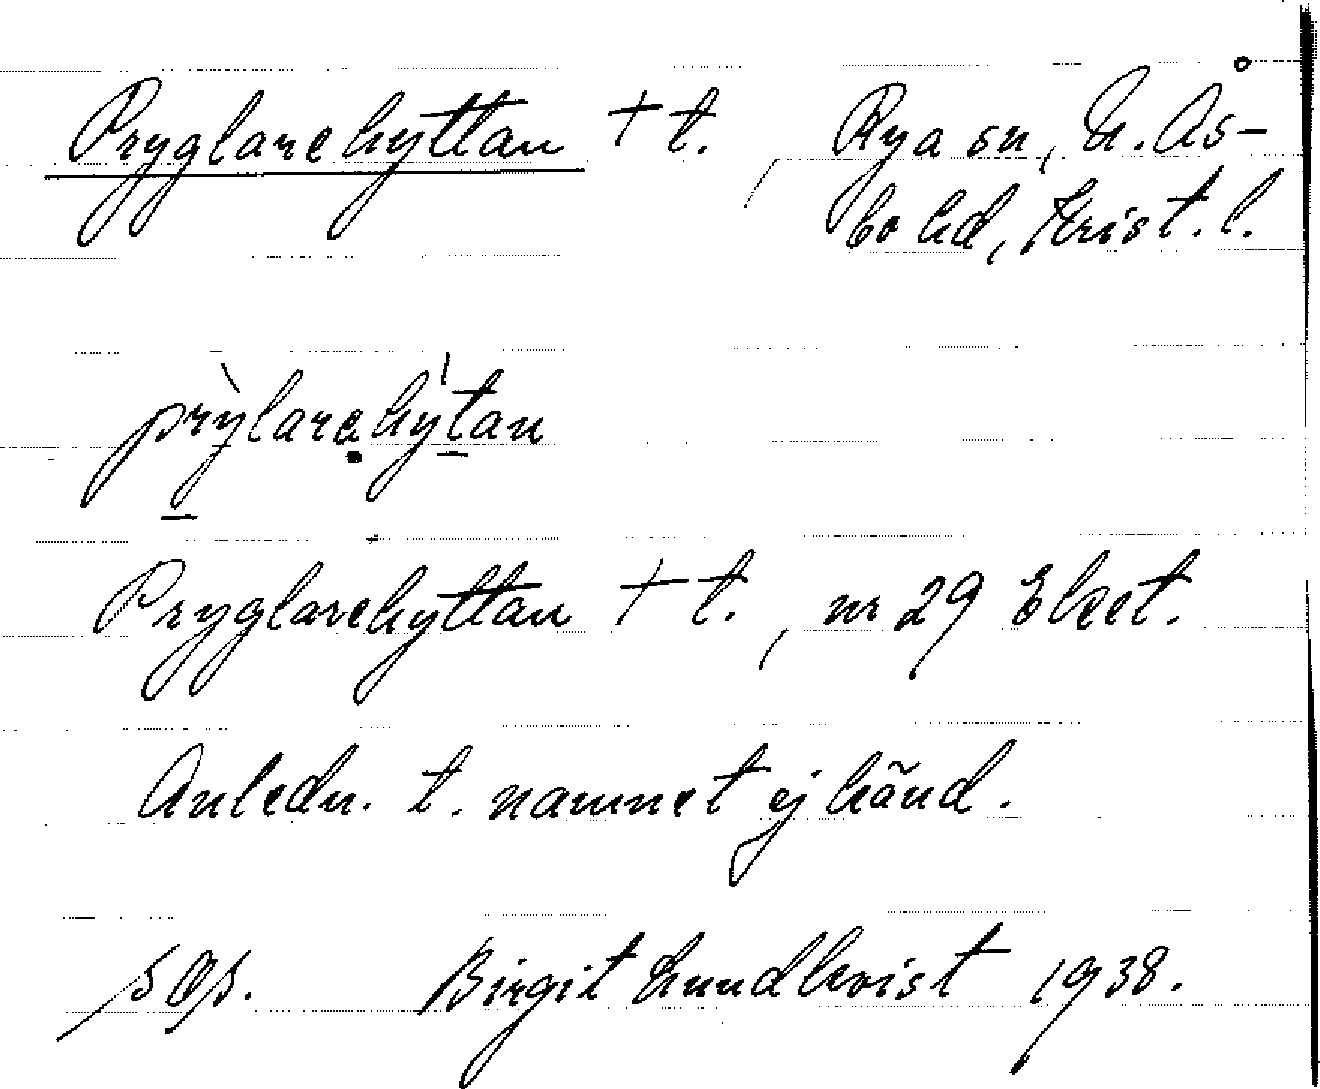 Pryglarehyttan + t., Rya sn, N. Ås-
bo hd, Krist. l.
prỳlarehýtan
Pryglarehyttan + t., nr 29 Eket.
Anledn. t. namnet ej känd.
Birgit Lundkvist 1938.